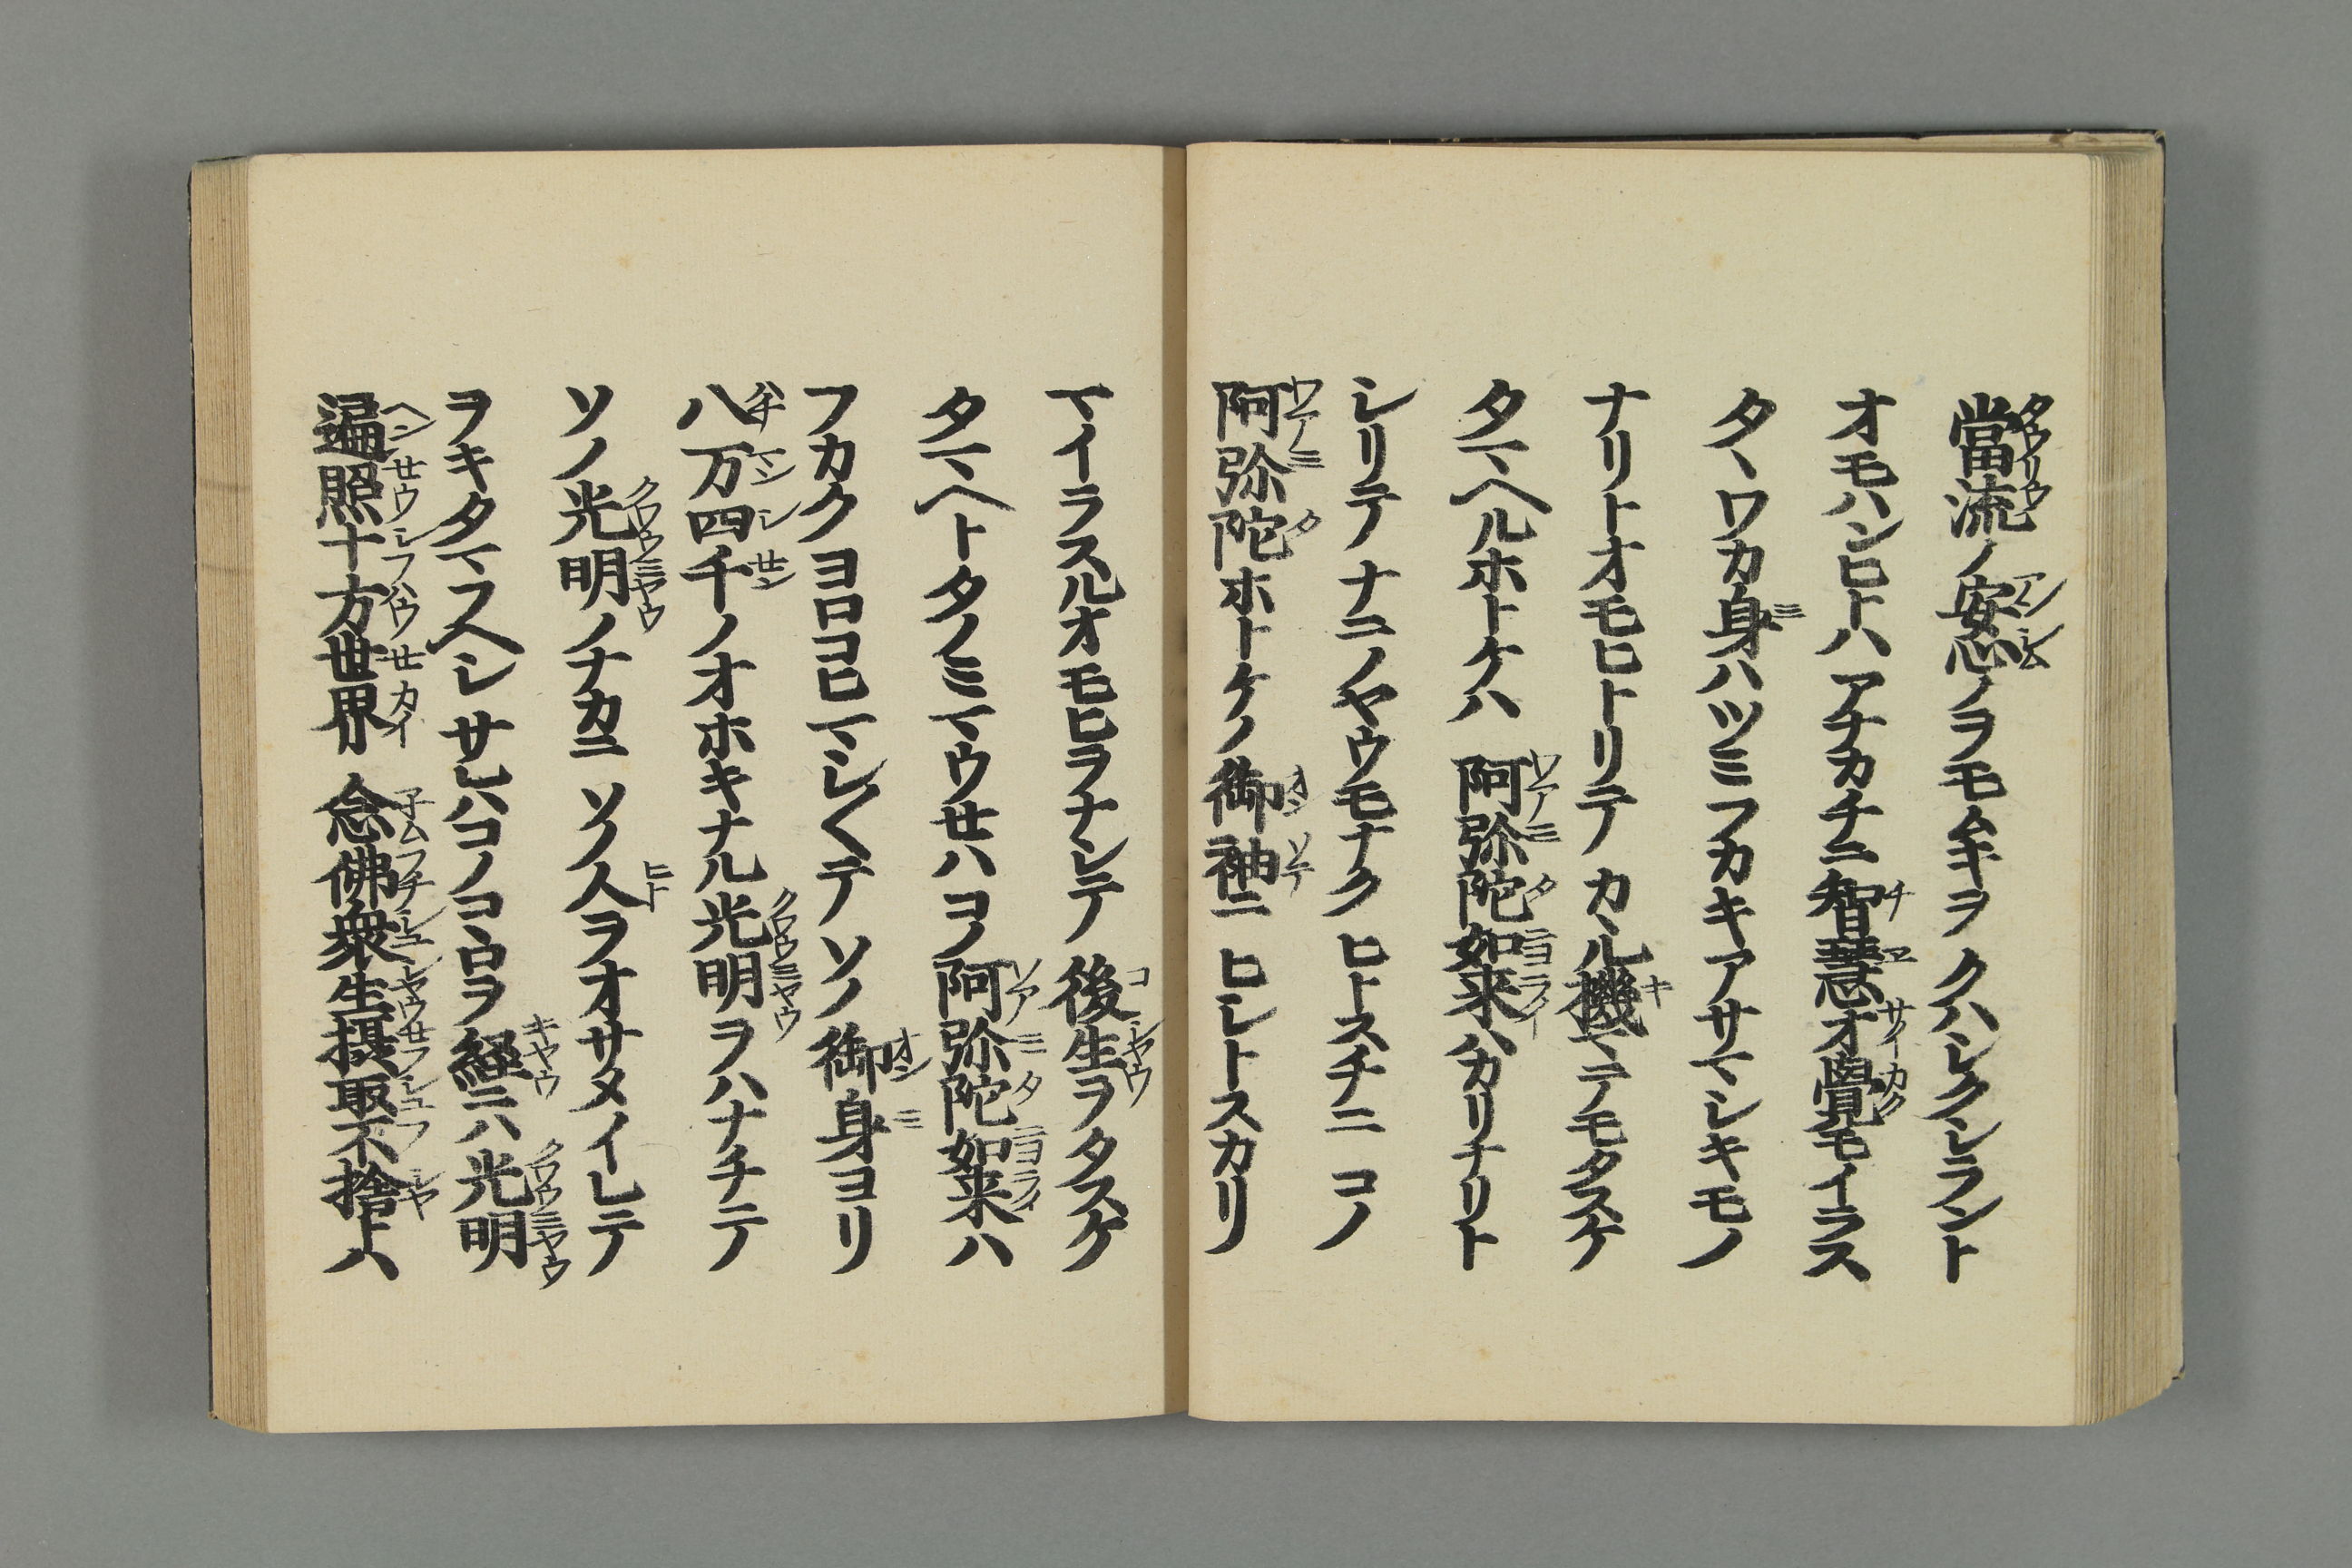 當流ノ安心ノヲモムキヲ クハシクシラント
オモハンヒトハ アナカチニ智慧才學モイラス
タヽワカ身ハツミフカキアサマシキモノ
ナリトオモヒトリテ カヽル機マテモタスケ
タマヘルホトケハ 阿弥陀如来ハカリナリト
シリテ ナニノヤウモナク ヒトスチニ コノ
阿弥陀ホトケノ御袖ニ ヒシトスカリ
マイラスルオモヒヲナシテ 後生ヲタスケ
タマヘトタノミマウセハ コノ阿弥陀如来ハ
フカクヨロコヒマシ〱テ ソノ御身ヨリ
八万四千ノオホキナル光明ヲハナチテ
ソノ光明ノナカニ ソノ人ヲオサメイレテ
ヲキタマフヘシ サレハコノコヽロヲ 経ニハ 光明
遍照十方世界 念佛衆生摂取不捨トハ